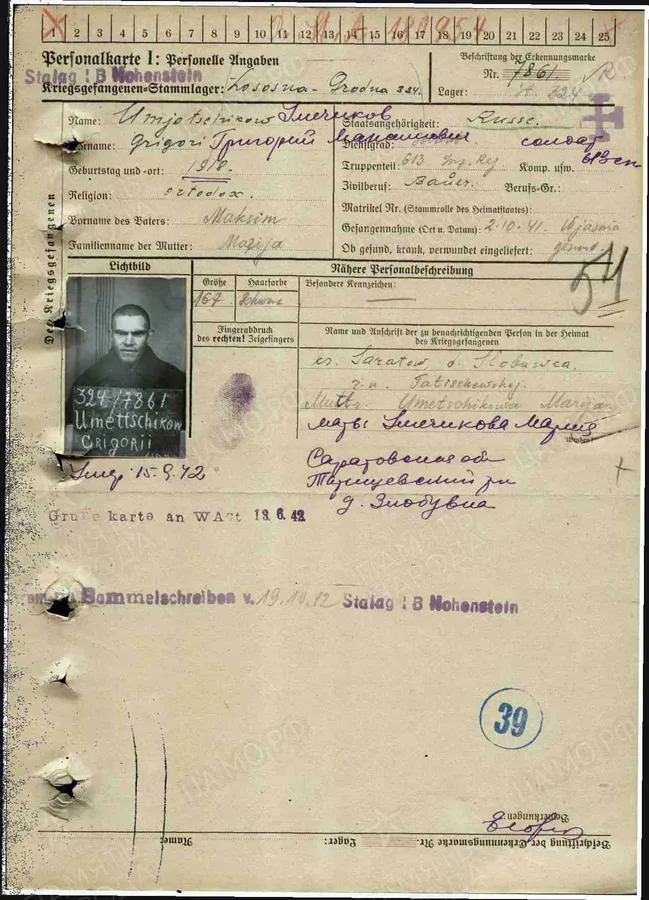 1 2 3 4 5 6 7 8 9 10 11 12 13 14 15 16 17 18 19 20 21 22 23 24 25
Personalkarte I: Personelle Angaben
Stalag I B Hohenstein
Kriegsgefangenen-Stammlager: Lososna-Grodna 324.
Beschriftung der Erkennungsmarke
Nr. 7861.
Lager: St. 324
Des Kriegsgefangenen
Name: Umjotschikow Умечиков
Vorname: Grigori Григорий Максимович
Geburtstag und -ort: 1918.
Religion: ortodox.
Vorname des Vaters: Maksim
Familienname der Mutter: Marija
Staatsangehörigkeit: Russe.
Dienstgrad: солдат
Truppenteil: 613 Ing. Reg Komp. usw. 613 сп
Zivilberuf: Bauer. Berufs-Gr.:
Matrikel Nr. (Stammrolle des Heimatstaates)
Gefangennahme (Ort u. Datum): 2.10.41. Wjasma
Ob gesund, krank, verwundet eingeliefert: gesund.
Lichtbild
Nähere Personalbeschreibung
Größe Haarfarbe
167. Schwarz
Besondere Kennzeichen:
54
Fingerabdruck
des rechten! Zeigefingers
Name und Anschrift der zu benachrichtigenden Person in der Heimat
des Kriegsgefangenen
Saratow, d. Slobuwca.
Tatischewskij.
Mutter Umetschikowa Marija
мать Умечикова Мария
Саратовская обл
Татищевский рн
д. Злобувка
324/7861
Umettschikow
Grigorii
Умер 15.9.42
Grüne karte an WASt 13.6.42
Sammelschreiben v. 19.10.42 Stalag I B Hohenstein
39
Bemerkungen:
Beschriftung der Erkennungsmarke Nr.
Lager:
Name:
ПАМЯТЬ
ЦАМО.РФ